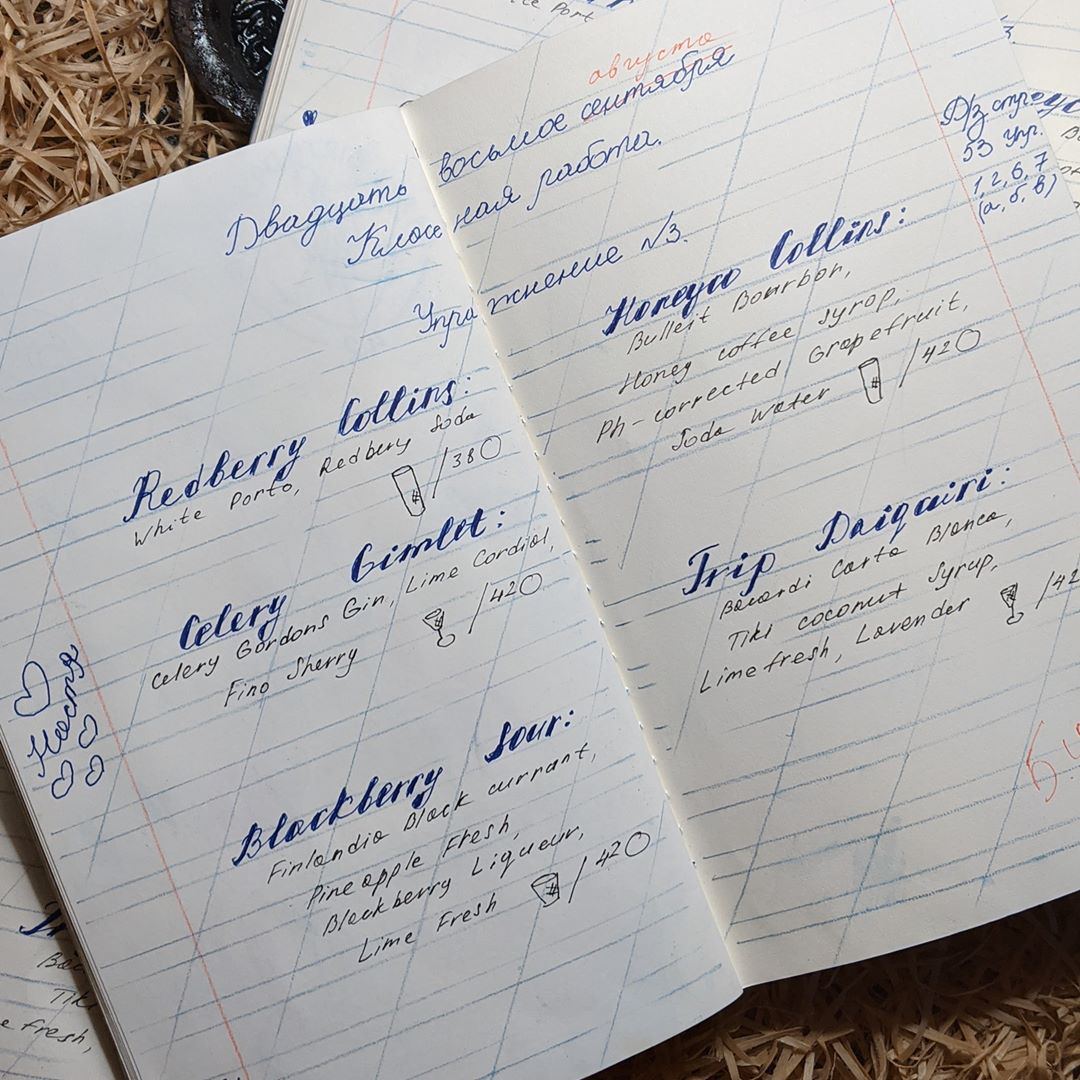 августа
Двадцать восьмое сентября
Классная работа.
Упражнение №3.
Д/з стр.
53 Упр.
1, 2, 6, 7
(а, б, в)
Redberry Collins:
White Porto, Redbery Soda
/380
Celery Gimlet:
Celery Gordons Gin, Lime Cordial,
Fino Sherry
/420
Blackberry Sour:
Finlandia Black currant,
Pineapple Fresh,
Blackberry Liqueur,
Lime Fresh
/420
Настя
Honeyco Collins:
Bulleit Bourbon,
Honey coffee syrop,
Ph-corrected Grapefruit,
Soda water
/420
Trip Daiquiri:
Bacardi Carta Blanca,
Tiki coconut Syrup,
Lime fresh, Lavender
/42
Port
Tik
e fresh,